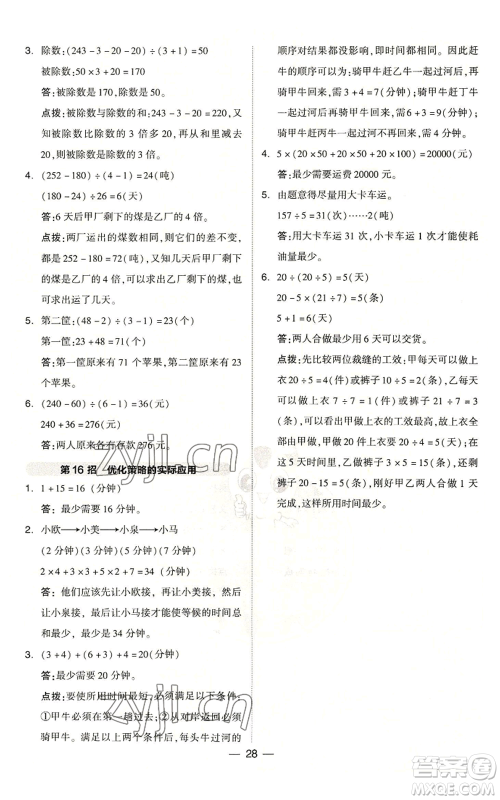 3. 除数:(243-3-20-20)÷(3+1)=50
被除数:50×3+20=170
答:被除数是 170,除数是 50。
点拨:被除数与除数的和是 243-3-20=220,
又知被除数比除数的 3 倍多 20,再从和里减去
20,就相当于除数的 3 倍。
4. (252-180)÷(4-1)=24(吨)
(180-24)÷26=6(天)
答:6 天后甲厂剩下的煤是乙厂的 4 倍。
点拨:两厂运出的煤数相同,则它们的差不变,
都是 252-180=72(吨),根据甲厂剩下的煤是
乙厂的 4 倍,可求出乙厂剩下的煤的吨数,便可
求出运了几天。
5. 第二筐:(48-2)÷(3-1)=23(个)
第一筐:23+48=71(个)
答:第一筐原来有 71 个苹果,第二筐原来有 23
个苹果。
6. (240-60)÷(6-1)=36(元)
240+36=276(元)
答:两人原来各有存款 276 元。
第 16 招 优化策略的实际应用
1. 1+15=16(分钟)
答:最少需要 16 分钟。
2. 小欧→小美→小泉→小马
(2 分钟)(3 分钟)(5 分钟)(7 分钟)
2×4+3×3+5×2+7=34(分钟)
答:他们应该先让小欧接,再让小美接,然后让
小泉接,最后让小马接才能使各自等候的时间总
和最少,最少是 34 分钟。
3. (3+4)+(6+3)+4=20(分钟)
答:最少需要 20 分钟。
点拨:要使所用时间最短,必须满足以下条件:
①甲牛必须在第一趟过去;②从对岸返回必须
骑甲牛。满足这两个条件后,每头牛过河的
顺序对结果都没影响,即时间都相同。因此赶
牛的方法为:骑甲牛赶乙牛一起过河后,再骑甲
牛返回,需 3+4=7(分钟);骑甲牛赶丁牛
一起过河后,再骑甲牛返回,需 6+3=9(分钟);
骑甲牛赶丙牛一起过河不再回来,需 4 分钟。
4. 5×(20×50+20×50+20×100)=20000(元)
答:最少需要运费 20000 元。
5. 由题意得尽量用大卡车运。
157÷5=31(次)……2(吨)
答:用大卡车运 31 次,小卡车运 1 次才能使耗
油量最少。
6. 20÷(20÷5)=5(天)
20-5×(21÷7)=5(条)
5+1=6(天)
答:两人合做最少用 6 天可以交货。
点拨:比较两位裁缝的工效:甲每天可以做上衣
20÷5=4(件)或裤子 20÷5=4(条);乙每天
可以做上衣 7÷7=1(件)或裤子 21÷7=3
(条)。因此甲做上衣的工效高,乙做裤子的工
效高。于是可以先安排甲做 20 件上衣,需要
20÷4=5(天),乙做裤子 5×3=15(条),还剩
裤子 20-15=5(条),刚好甲乙两人合做 1 天完
成,这样,所用时间最少。
28
zyjl.cn
zyjl.cn